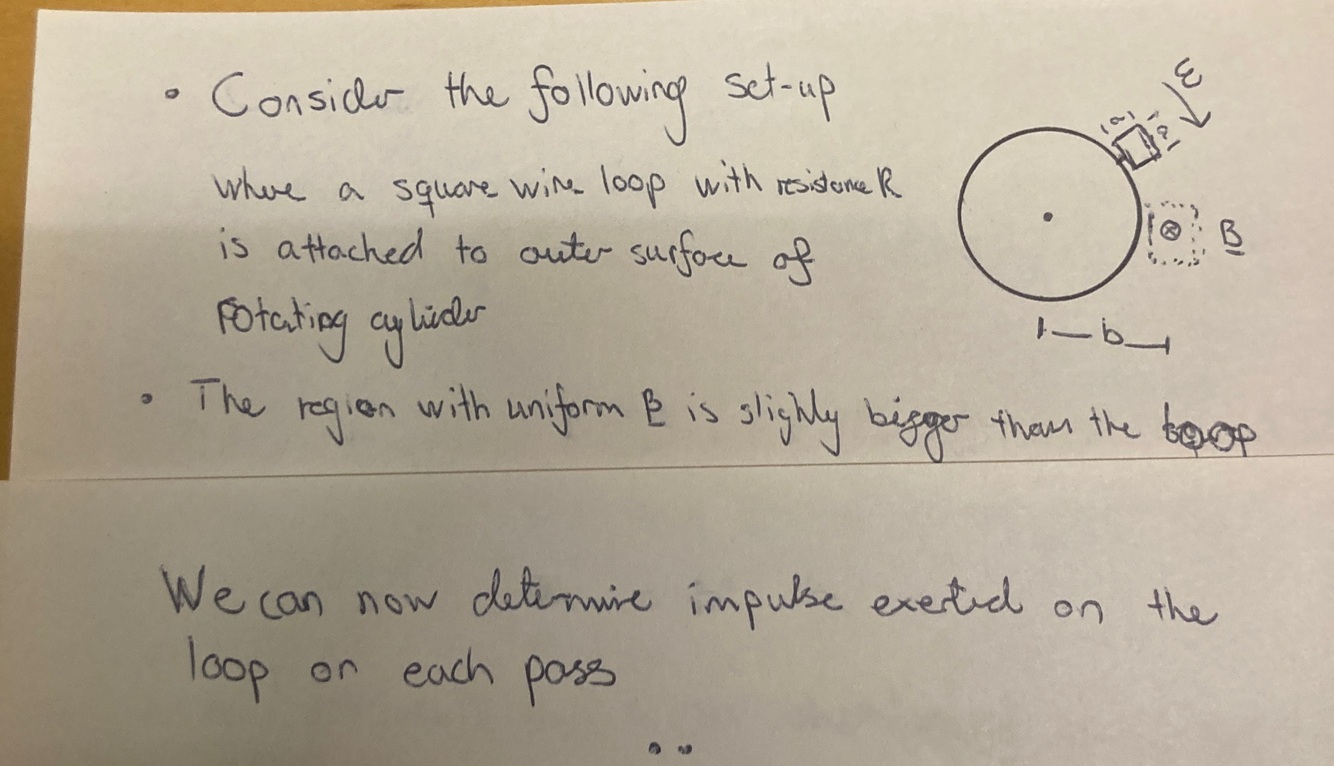 • Consider the following set-up
where a square wire loop with resistance R
is attached to outer surface of
rotating cylinder
• The region with uniform B is slighly bigger than the loop
We can now determine impulse exerted on the
loop on each pass
a
a
ω
⊗
B
b